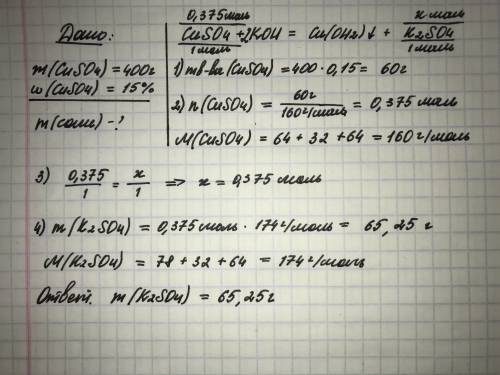 Дано:
m(CuSO4) = 400г
w(CuSO4) = 15%
m(соли) - ?
0,375моль x моль
CuSO4 + 2KOH = Cu(OH2)↓ + K2SO4
1моль 1моль
1) mв-ва(CuSO4) = 400 · 0,15 = 60г
2) n(CuSO4) = 60г / 160г/моль = 0,375 моль
M(CuSO4) = 64 + 32 + 64 = 160г/моль
3) 0,375/1 = x/1 => x = 0,375 моль
4) m(K2SO4) = 0,375моль · 174г/моль = 65,25 г
M(K2SO4) = 78 + 32 + 64 = 174г/моль
Ответ. m(K2SO4) = 65,25г